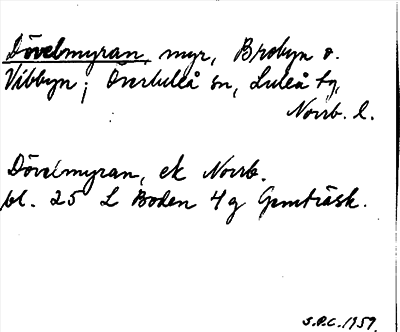 Dövelmyran, myr, Brobyn o.
Vibbyn, Överluleå sn, Luleå tg,
Norrb. l.
Dövelmyran, ek Norrb.
bl. 25 L Boden 4g Gemträsk.
S.P.C. 1959.